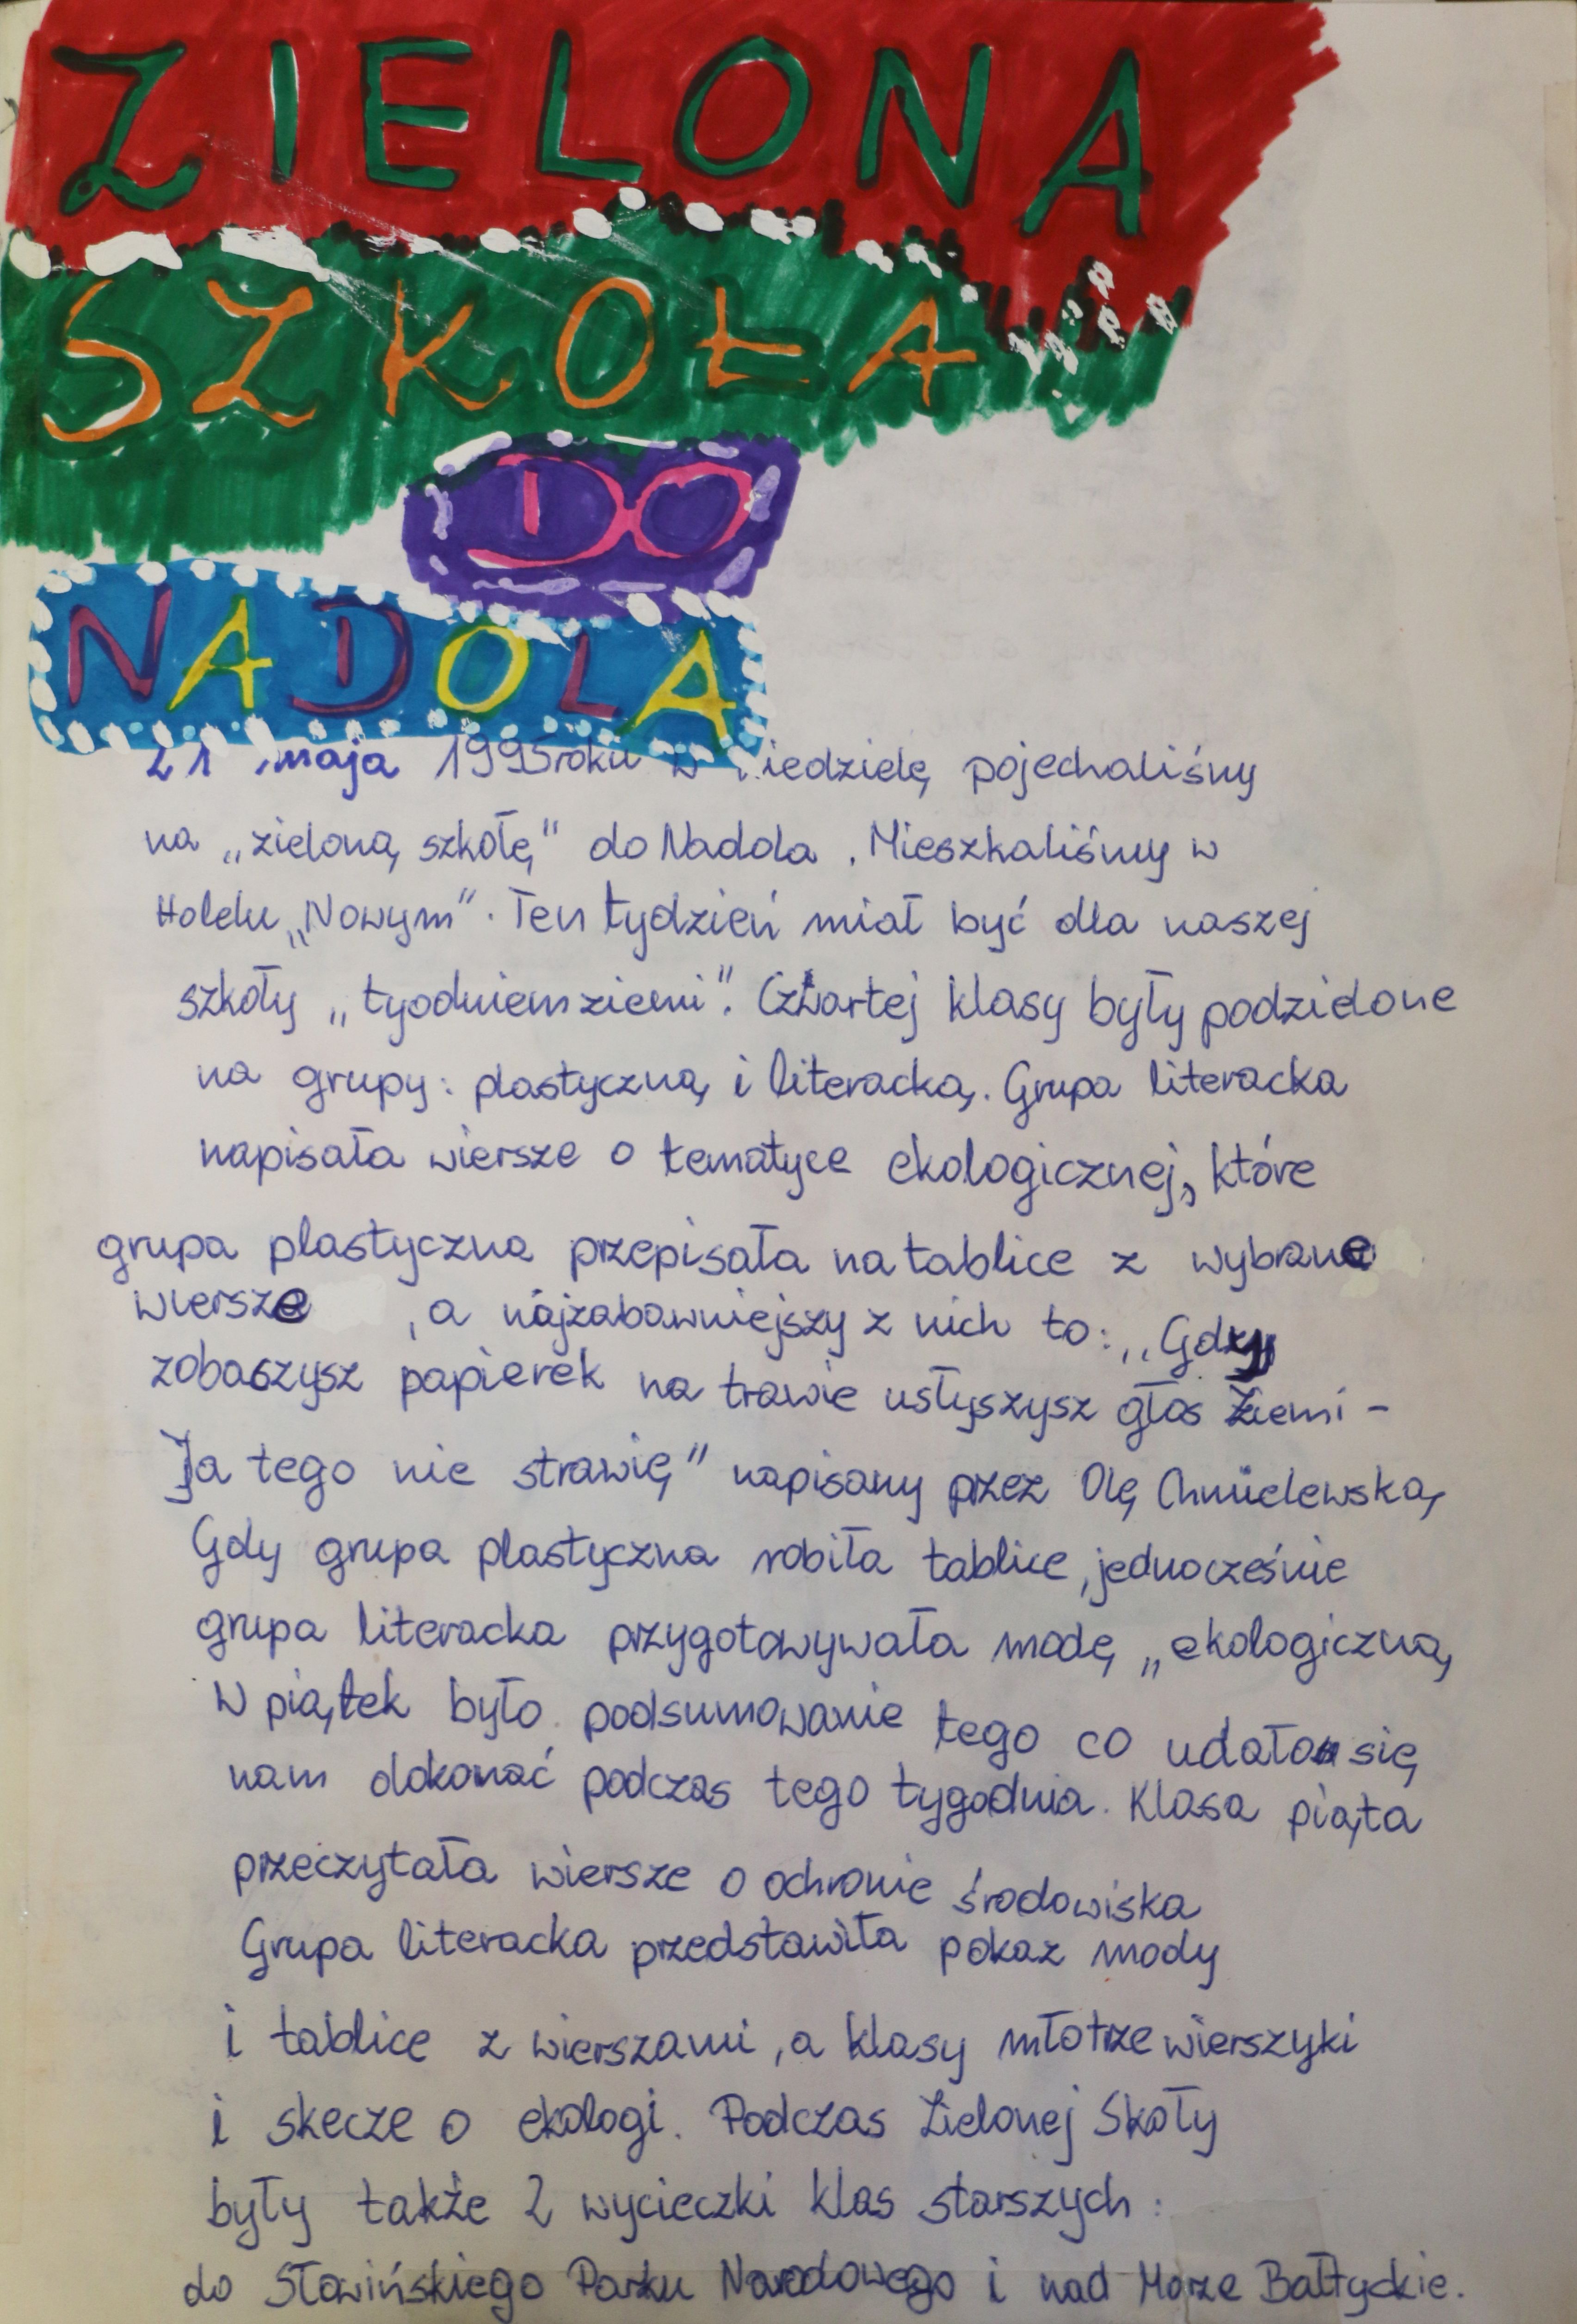 ZIELONA
SZKOŁA
DO
NADOLA
21 maja 1995 roku w niedzielę pojechaliśmy
na „zieloną szkołę" do Nadola. Mieszkaliśmy w
Hotelu „Nowym". Ten tydzień miał być dla naszej
szkoły „tyodniem ziemi". Czwartej klasy były podzielone
na grupy: plastyczną i literacką. Grupa literacka
napisała wiersze o tematyce ekologicznej, które
grupa plastyczna przepisała na tablice z wybrane
wiersze , a najzabawniejszy z nich to: „Gdy
zobaszysz papierek na trawie usłyszysz głos Ziemi -
Ja tego nie strawię" napisany przez Olę Chmielewską
Gdy grupa plastyczna robiła tablice, jednocześnie
grupa literacka przygotowywała modę „ekologiczną
W piątek było podsumowanie tego co udało się
nam dokonać podczas tego tygodnia. Klasa piąta
przeczytała wiersze o ochronie środowiska
Grupa literacka przedstawiła pokaz mody
i tablice z wierszami, a klasy młotrze wierszyki
i skecze o ekologi. Podczas Zielonej Skoły
były także 2 wycieczki klas starszych:
do Słowińskiego Parku Narodowego i nad Morze Bałtyckie.